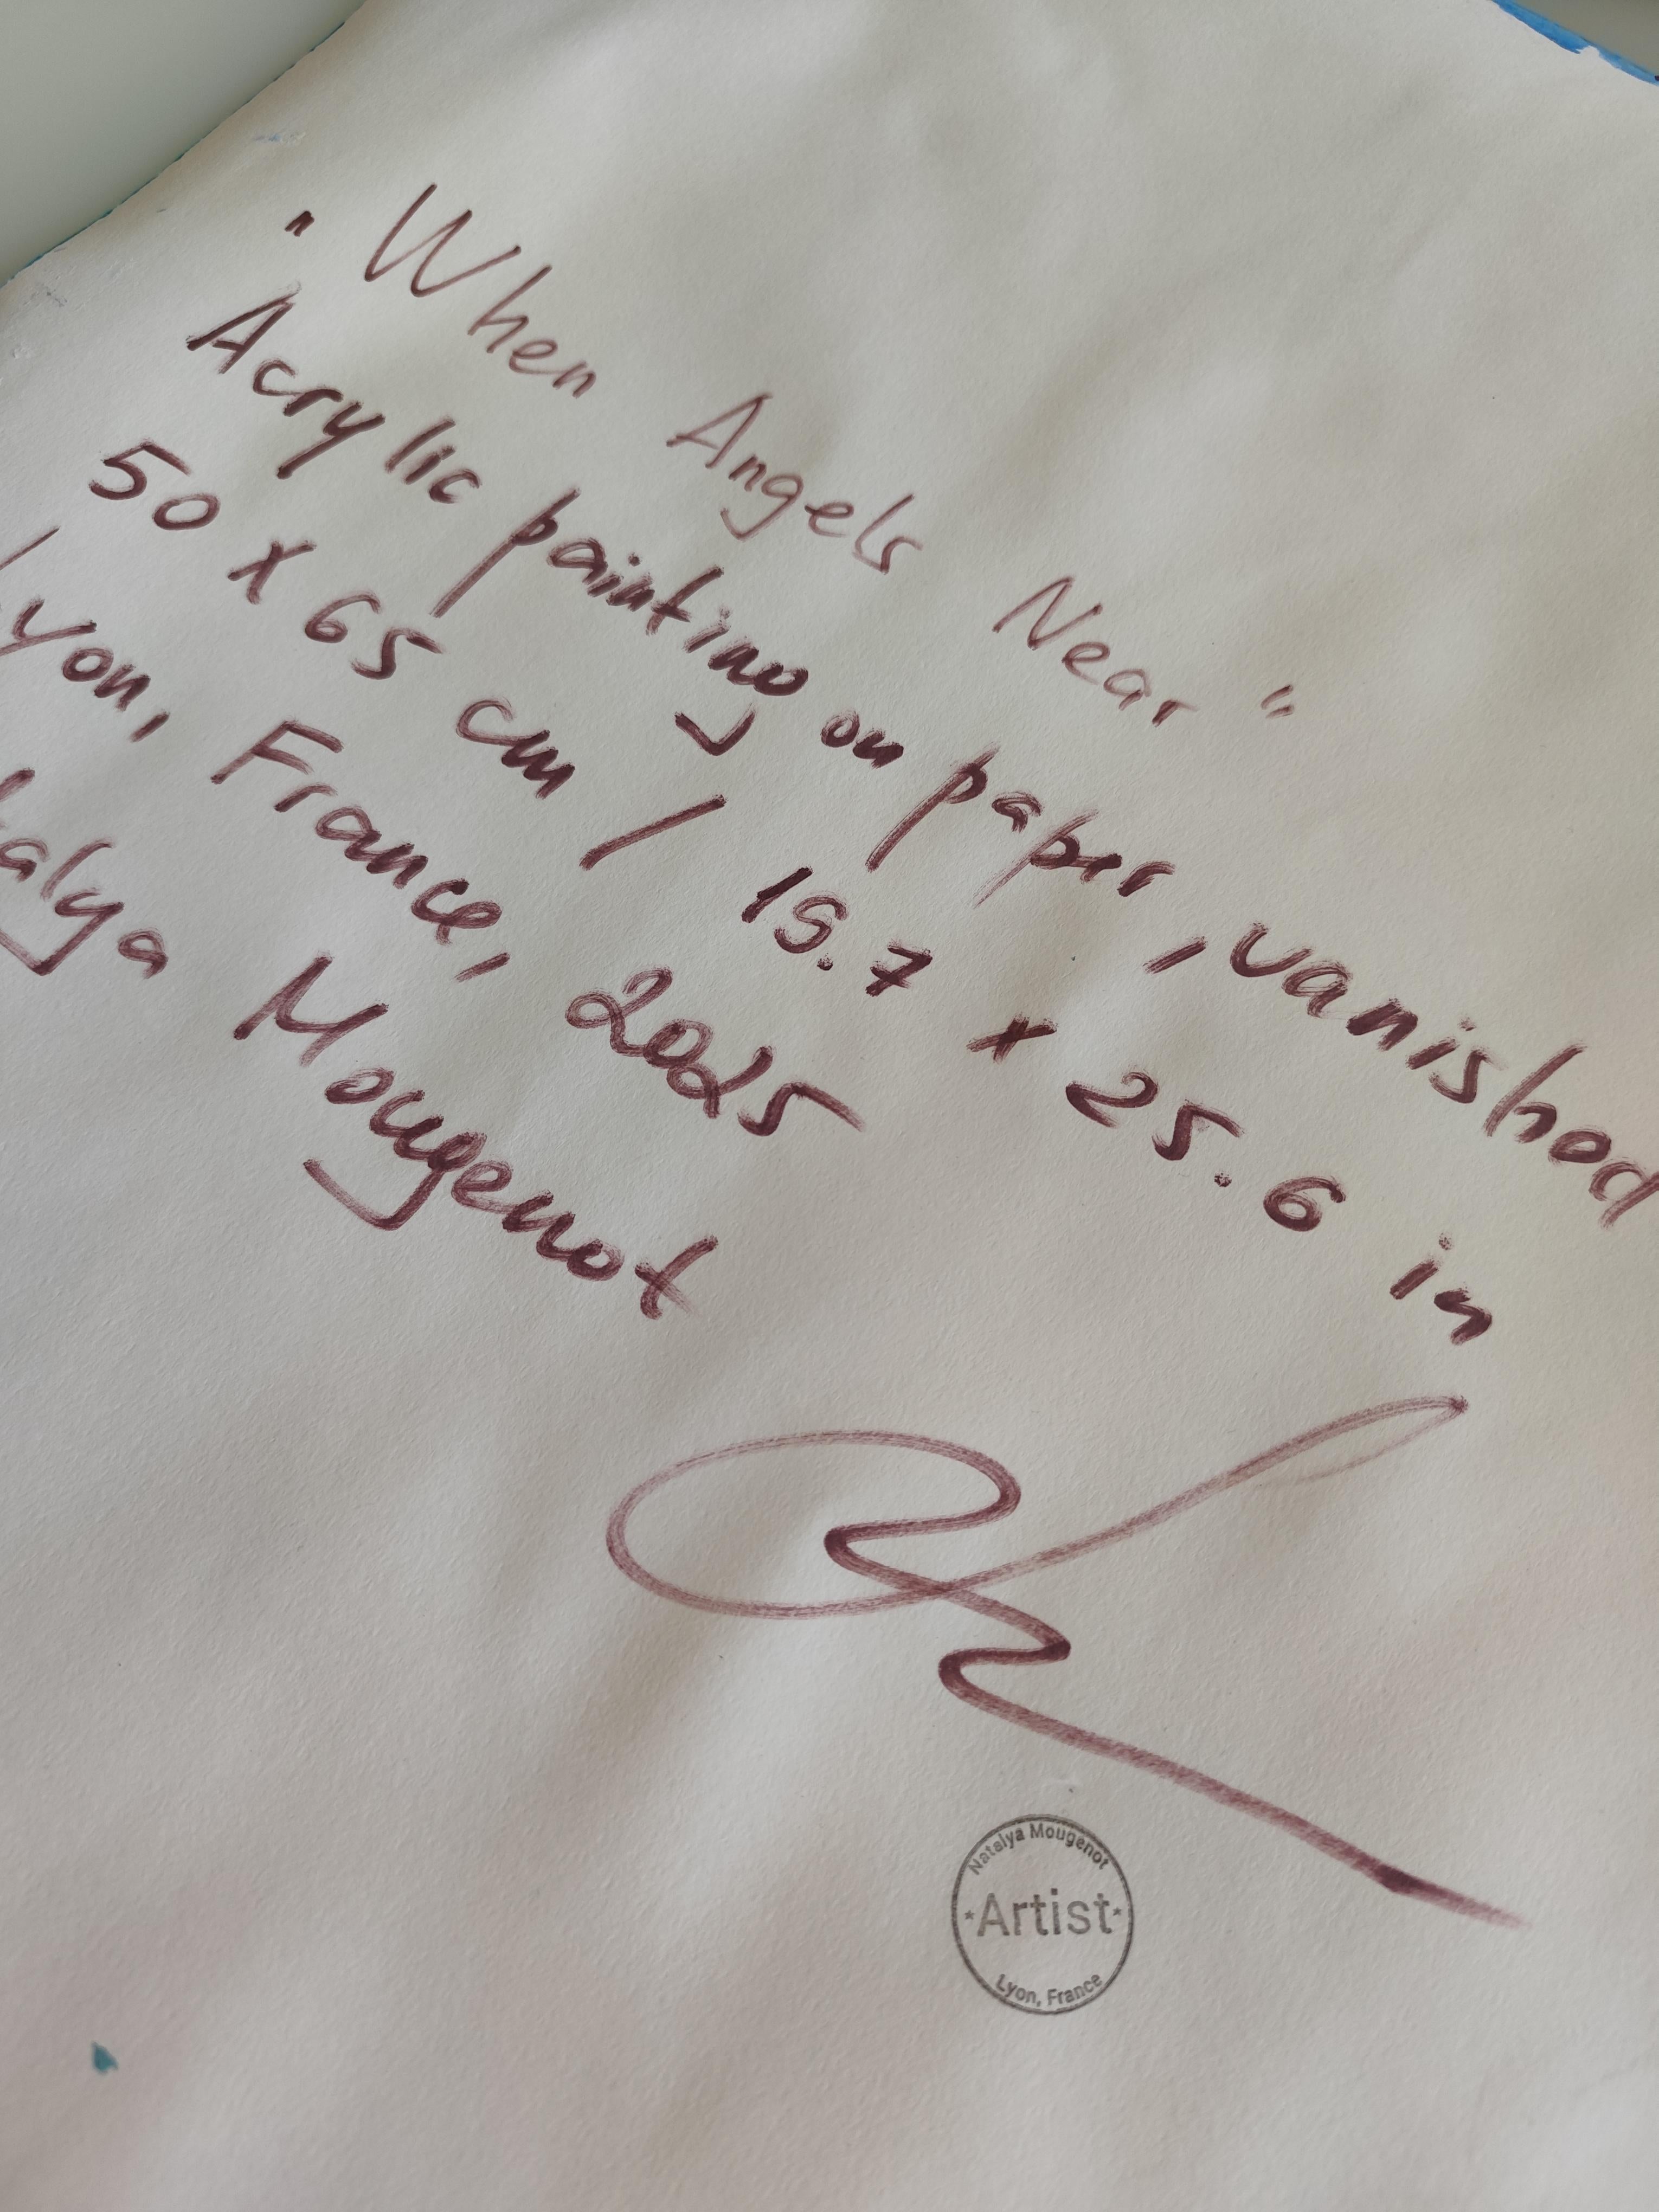 "When Angels Near"
Acrylic painting on paper, vanished
50 x 65 cm / 19.7 x 25.6 in
Lyon, France, 2025
talya Mougenot
Natalya Mougenot
Artist
Lyon, France